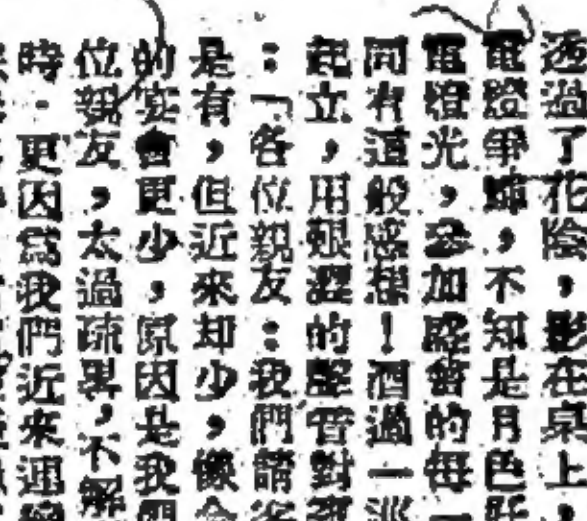 透過了花陰，影在桌上，
電燈爭輝，不知是月色
電燈光，參加宴會的每一
同有這般感想！酒過一巡
起立，用艱澀的聲音對
：「各位親友：我們請客
是有，但近來却少，像今
的宴會更少，原因是我們
位親友，太過疏異，不解
時．更因為我們近來運